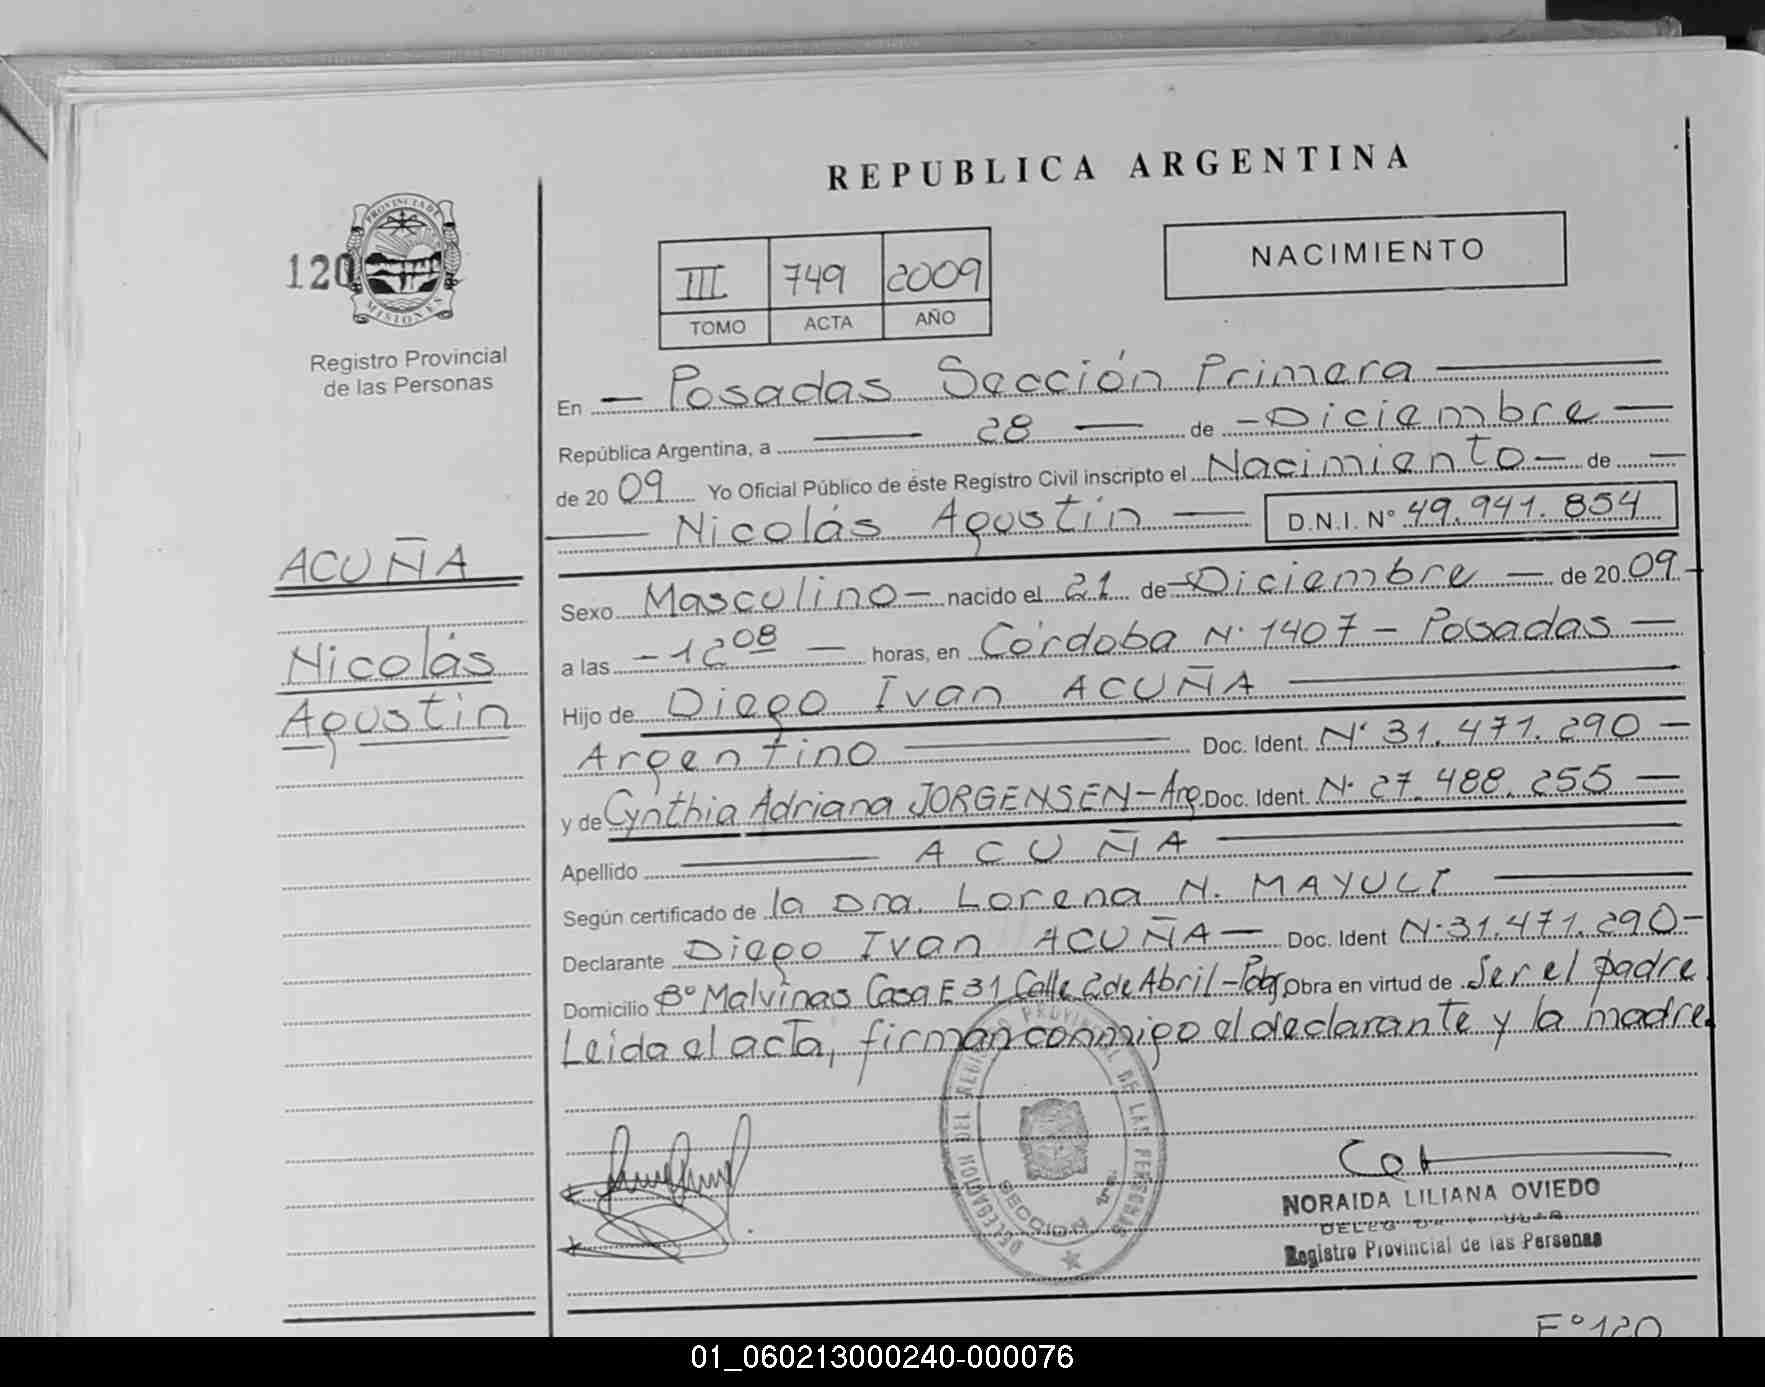 REPUBLICA ARGENTINA
PROVINCIA DE MISIONES
120
NACIMIENTO
III 749 2009
TOMO ACTA AÑO
Registro Provincial
de las Personas
En — Posadas Sección Primera —
República Argentina, a — 28 — de — Diciembre —
de 20 09 Yo Oficial Público de éste Registro Civil inscripto el Nacimiento — de —
— Nicolás Agustín — D.N.I. Nº 49.941.854
ACUÑA
Nicolás
Agustín
Sexo Masculino — nacido el 21 de — Diciembre — de 20 09 -
a las — 12 08 — horas, en Córdoba Nº 1407 — Posadas —
Hijo de Diego Ivan ACUÑA —
Argentino — Doc. Ident. Nº 31.471.290 —
y de Cynthia Adriana JORGENSEN — Arg. Doc. Ident. Nº 27.488.255 —
Apellido — ACUÑA —
Según certificado de la Dra. Lorena N. MAYULI —
Declarante Diego Ivan ACUÑA — Doc. Ident Nº 31.471.290 —
Domicilio Bº Malvinas Casa E 31 Calle 2 de Abril — Pdas Obra en virtud de Ser el padre.
Leida el acta, firman conmigo el declarante y la madre.
DELEGACION DEL REGISTRO PROVINCIAL DE LAS PERSONAS
SECCION 1ra.
NORAIDA LILIANA OVIEDO
Registro Provincial de las Personas
Fº 120
01_060213000240-000076